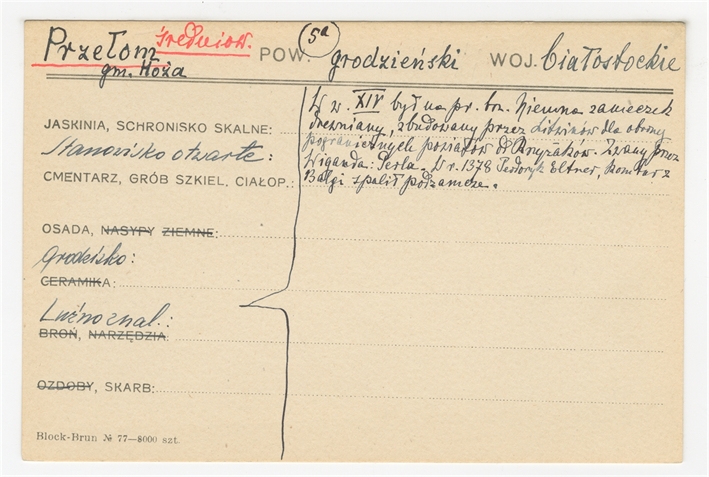 Przełom średniow. POW. 5a grodzieński WOJ. białostockie
gm. Hoża
W w. XIV był na pr. brz. Niemna zameczek
JASKINIA, SCHRONISKO SKALNE: drewniany, zbudowany przez Litwinów dla obrony
Stanowisko otwarte: pogranicznych powiatów od Krzyżaków. Zwany przez
CMENTARZ, GRÓB SZKIEL, CIAŁOP.: Wiganda: Perla. W r. 1378 Teodoryk Eltner, komtur z
Balgi spalił podzamcze.
OSADA, NASYPY ZIEMNE:
Grodzisko:
CERAMIKA:
Luźno znal.:
BROŃ, NARZĘDZIA
OZDOBY, SKARB:
Block-Brun № 77—8000 szt.